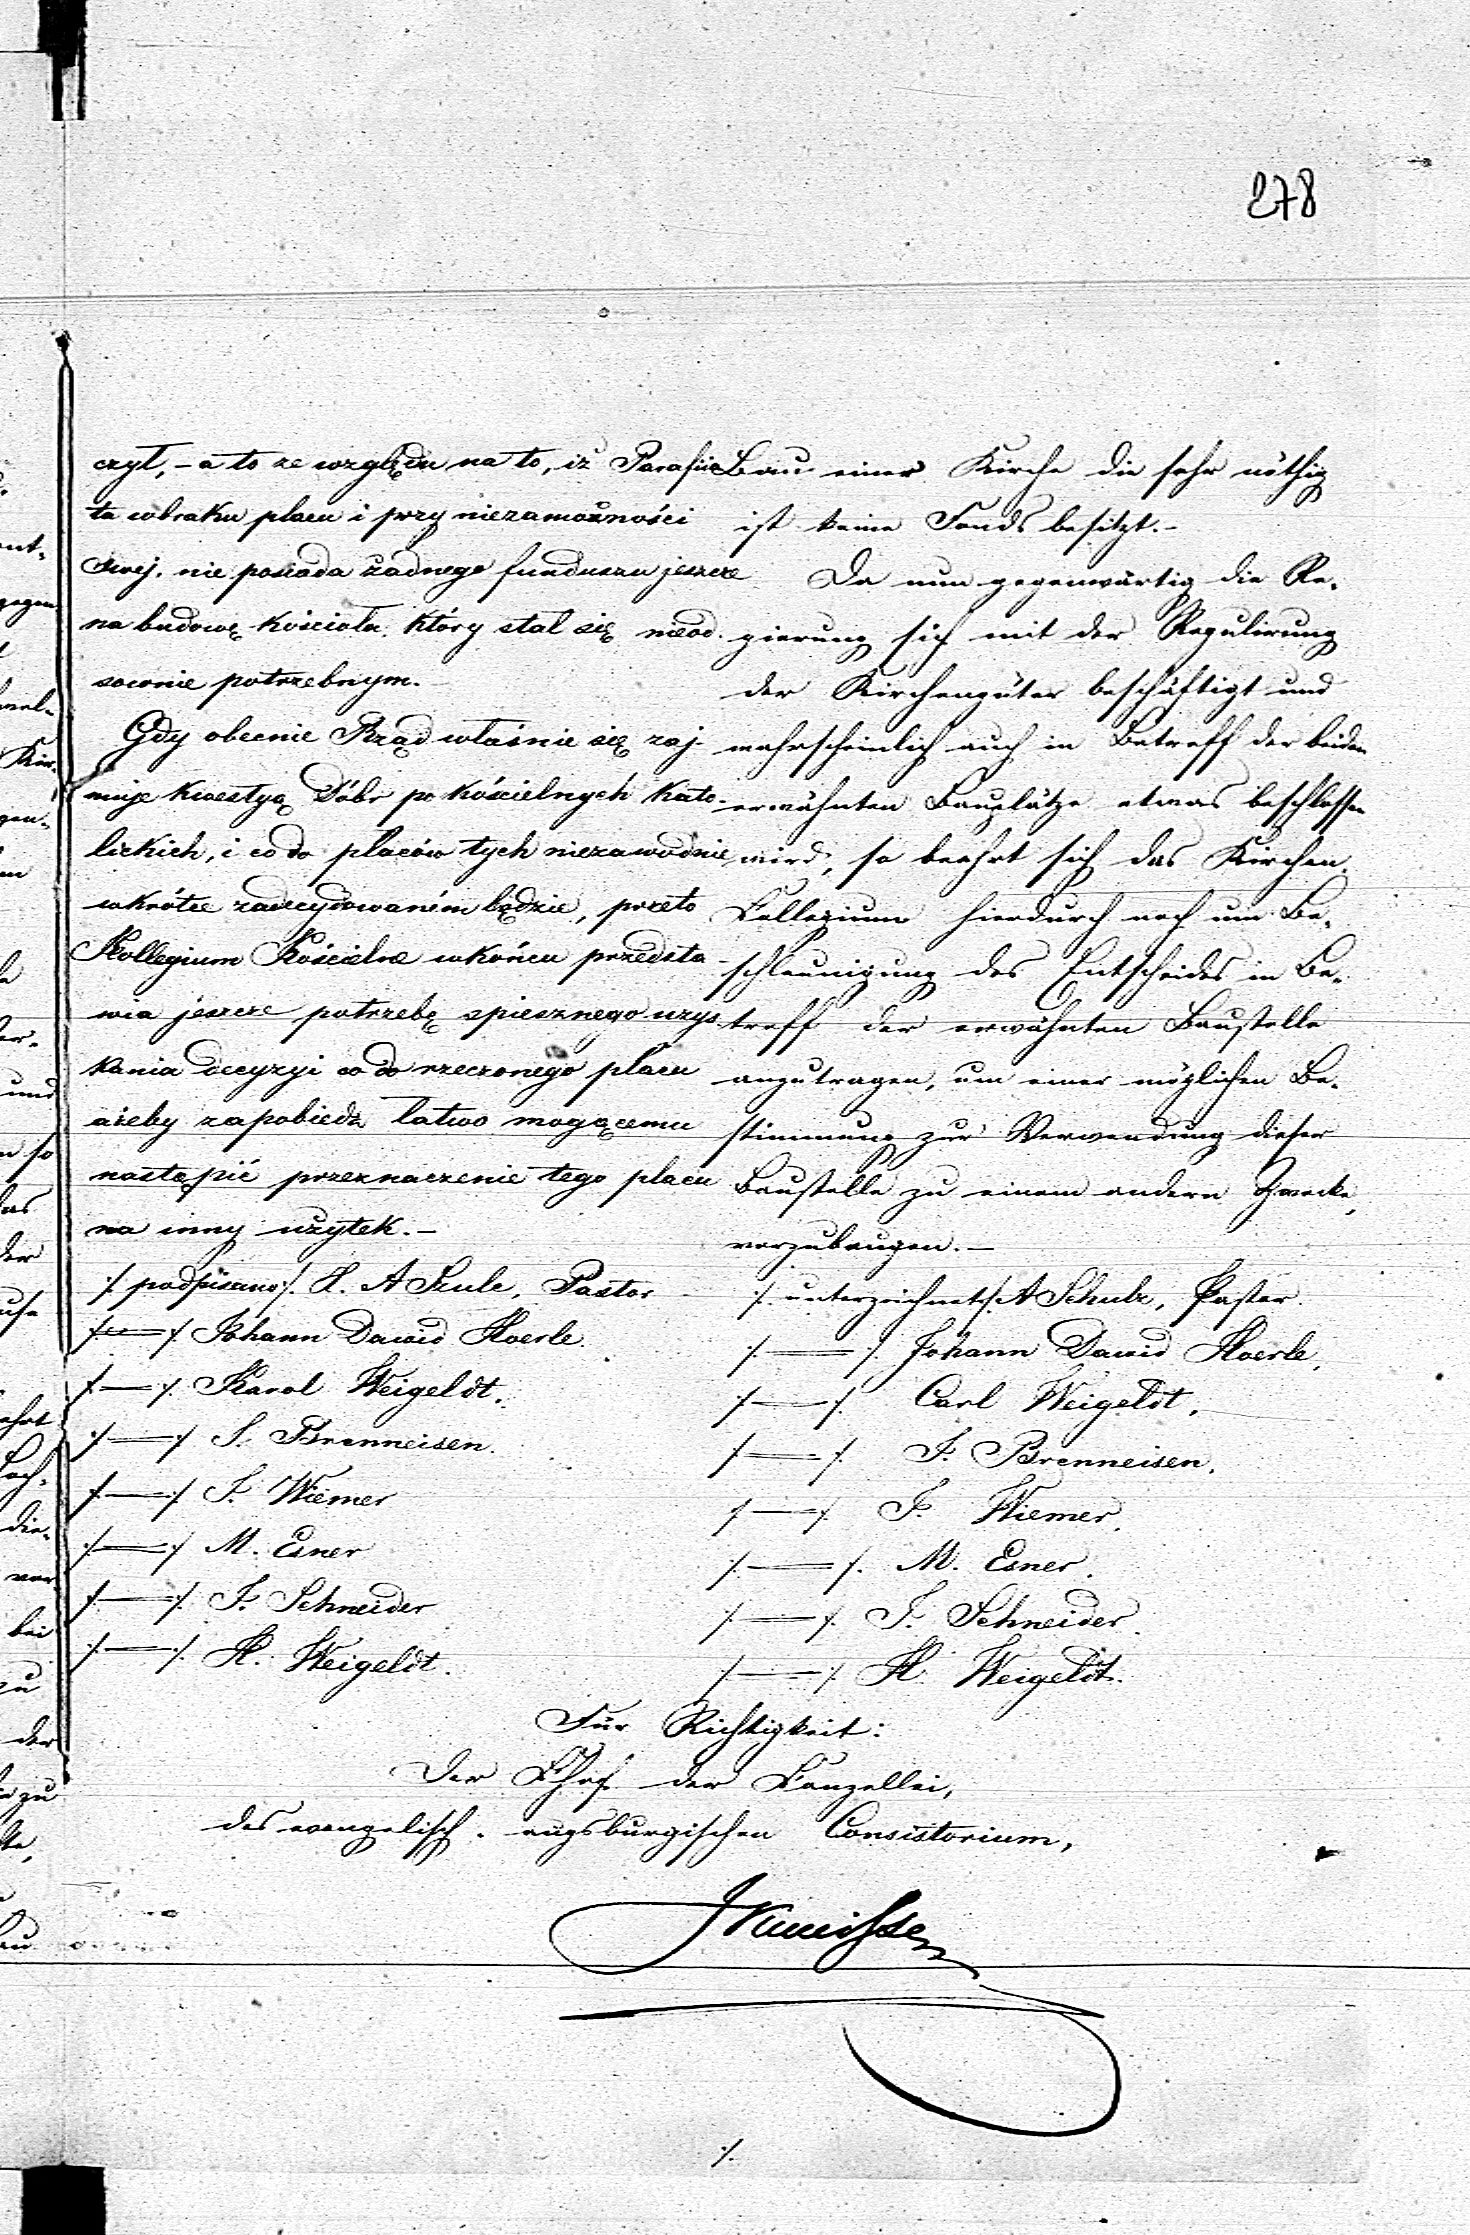 278
czył, – a to ze względu na to, iż Parafija
ta w braku placu i przy niezamożności
swej, nie posiada żadnego funduszu jeszcze
na budowę kościoła, który stał się nieod-
zownie potrzebnym. –
Gdy obecnie Rząd właśnie się zaj-
muje kwestyą Dóbr po kościelnych kato-
lickich, i co do placów tych niezawodnie
wkrótce zadecydowaném będzie, przeto
Kollegium Kościelne wkońcu przedsta-
wia jeszcze potrzebę spiesznego uzys
kania decyzyi co do rzeczonego placu
ażeby zapobiedz łatwo mogącemu
nastąpić przeznaczenie tego placu
na inny użytek. –
/. podpisano ./. H. A Szulc, Pastor
/. — /. Johann Dawid Hoerle.
/. — /. Karol Weigeldt.
/. — /. S. Brenneisen.
/. — /. F. Wiemer
/. — /. M. Esner
/. — /. F. Schneider
/. — /. H. Weigeldt.
Bau einer Kirche die sehr nöthig
ist keine Fonds besitzt. –
Da nun gegenwärtig die Re-
gierung sich mit der Regulirung
der Kirchengüter beschäftigt und
wahrscheinlich auch in Betreff der beiden
erwähnten Bauplätze etwas beschlossen
wird, so beehrt sich das Kirchen-
Collegium hierdurch noch um Be-
schleunigung des Entscheides in Be-
treff der erwähnten Baustelle
anzutragen, um einer möglichen Be-
stimmung zur Verwendung dieser
Baustelle zu einem andern Zwecke,
vorzubeugen. –
/. unterzeichnet ./. A Schulz, Pastor.
/. — /. Johann Dawid Hoerle,
/. — /. Carl Weigeldt,
/. — /. F. Brenneisen,
/. — /. F. Wiemer,
/. — /. M. Esner.
/. — /. F. Schneider.
/. — /. H. Weigeldt.
Für Richtigkeit:
Der Chef der Canzellei,
des evangelisch-augsburgischen Consistorium,
./.